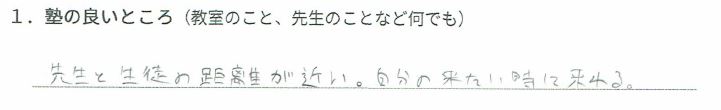 1. 塾の良いところ（教室のこと、先生のことなど何でも）
先生と生徒の距離が近い。自分の来たい時に来れる。